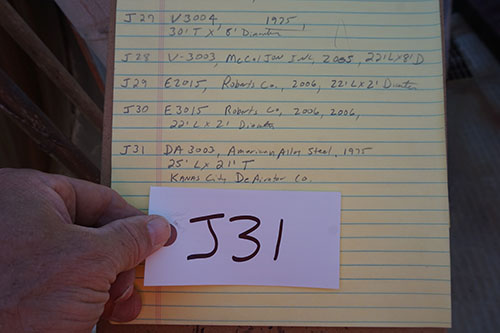 J27 V3004, 1975,
30' T X 8' Diameter
J28 V-3003, McColJon Inc, 2005, 22'L X 8'D
J29 E2015, Roberts Co., 2006, 22' L X 2' Diameter
J30 E3015 Roberts Co, 2006, 2006,
22' L X 2' Diameter
J31 DA 3003, American Alloy Steel, 1975
25' L X 21' T
Kanas City DeAirator Co.
J31